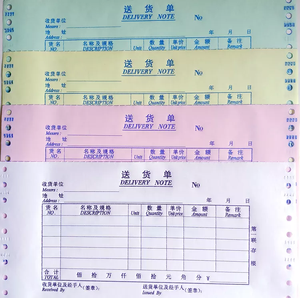 送 货 单
DELIVERY NOTE No
收货单位
Messrs:
地 址 年 月 日
Address:
货名 名称及规格 单位 数量 单价 金额 备注
NO. DESCRIPTION Unit Quantity Unit price Amount Remark
送 货 单
DELIVERY NOTE No
收货单位
Messrs:
地 址 年 月 日
Address:
货名 名称及规格 数量 单价 金额 备注
NO. DESCRIPTION Unit Quantity Unit price Amount Remark
送 货 单
DELIVERY NOTE No
收货单位
Messrs:
地 址 年 月 日
Address:
货名 名称及规格 数量 单价 金额 备注
NO. DESCRIPTION Unit Quantity Unit price Amount Remark
送 货 单
DELIVERY NOTE No
收货单位
Messrs:
地 址
Address: 年 月 日
货名 名称及规格 数量 单价 金额 备注
NO. DESCRIPTION Unit Quantity Unit price Amount Remark
第一联存根
合计 佰 拾 万 仟 佰 拾 元 角 分 ¥
TOTAL
收货单位及经手人(签章): 送货单位及经手人(签章):
Received By Issued By